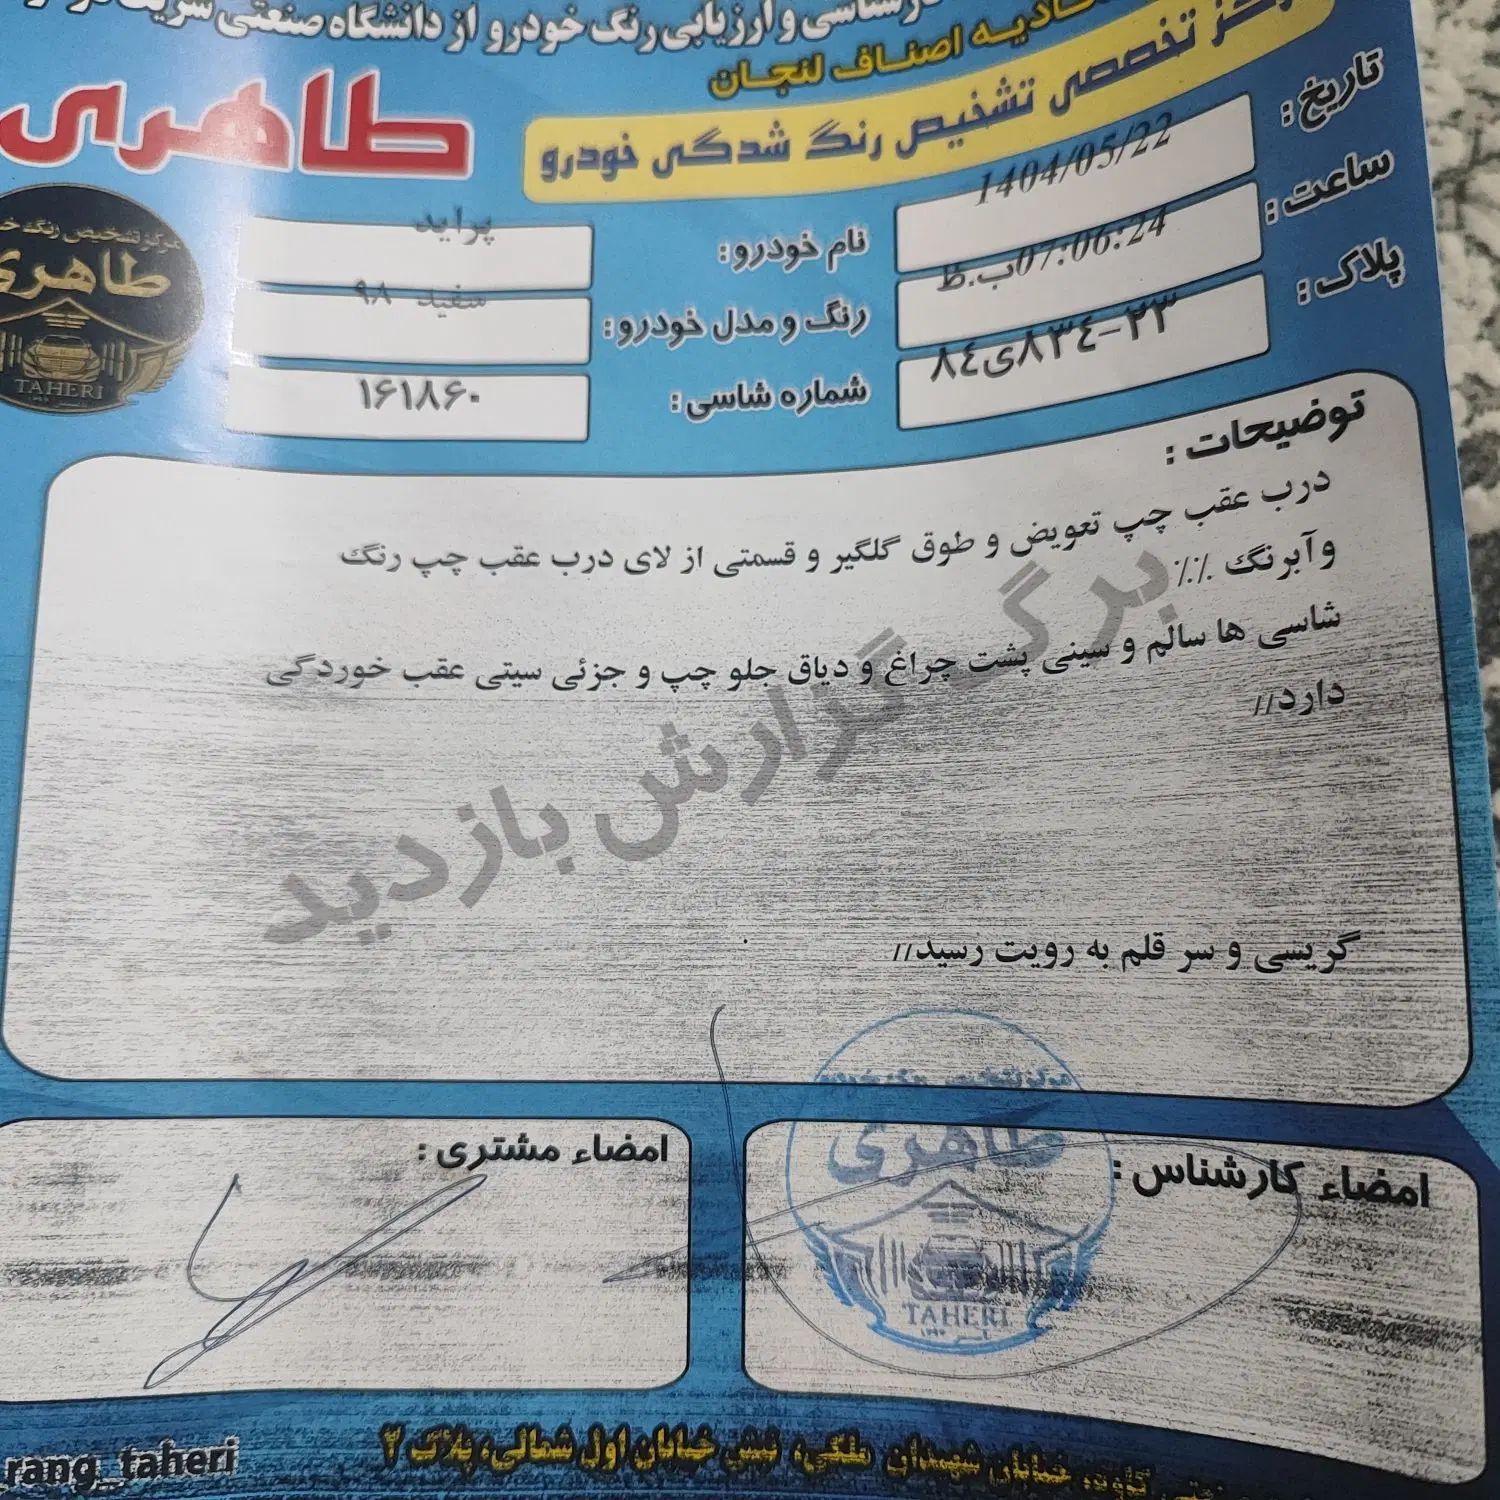 و ارزیابی رنگ خودرو از دانشگاه صنعتی
اصناف لنجان
تخصصی تشخیص رنگ شدگی خودرو
طاهری
تاریخ :
1404/05/22
ساعت :
07:06:24ب.ظ
پلاک :
۸۴ی۸۳۴-۲۳
نام خودرو :
پراید
رنگ و مدل خودرو :
سفید ۹۸
شماره شاسی :
۱۶۱۸۶۰
مرکز تشخیص رنگ
طاهری
TAHERI
توضیحات :
درب عقب چپ تعویض و طوق گلگیر و قسمتی از لای درب عقب چپ رنگ
وآبرنگ ٪.٪
شاسی ها سالم و سینی پشت چراغ و دیاق جلو چپ و جزئی سیتی عقب خوردگی
دارد//
برگ گزارش بازدید
گریسی و سر قلم به رویت رسید//
امضاء کارشناس :
امضاء مشتری :
مرکز تشخیص رنگ خودرو
طاهری
TAHERI
خیابان شهیدان ملکی، نبش خیابان اول شمالی، پلاک ۲
rang_taheri